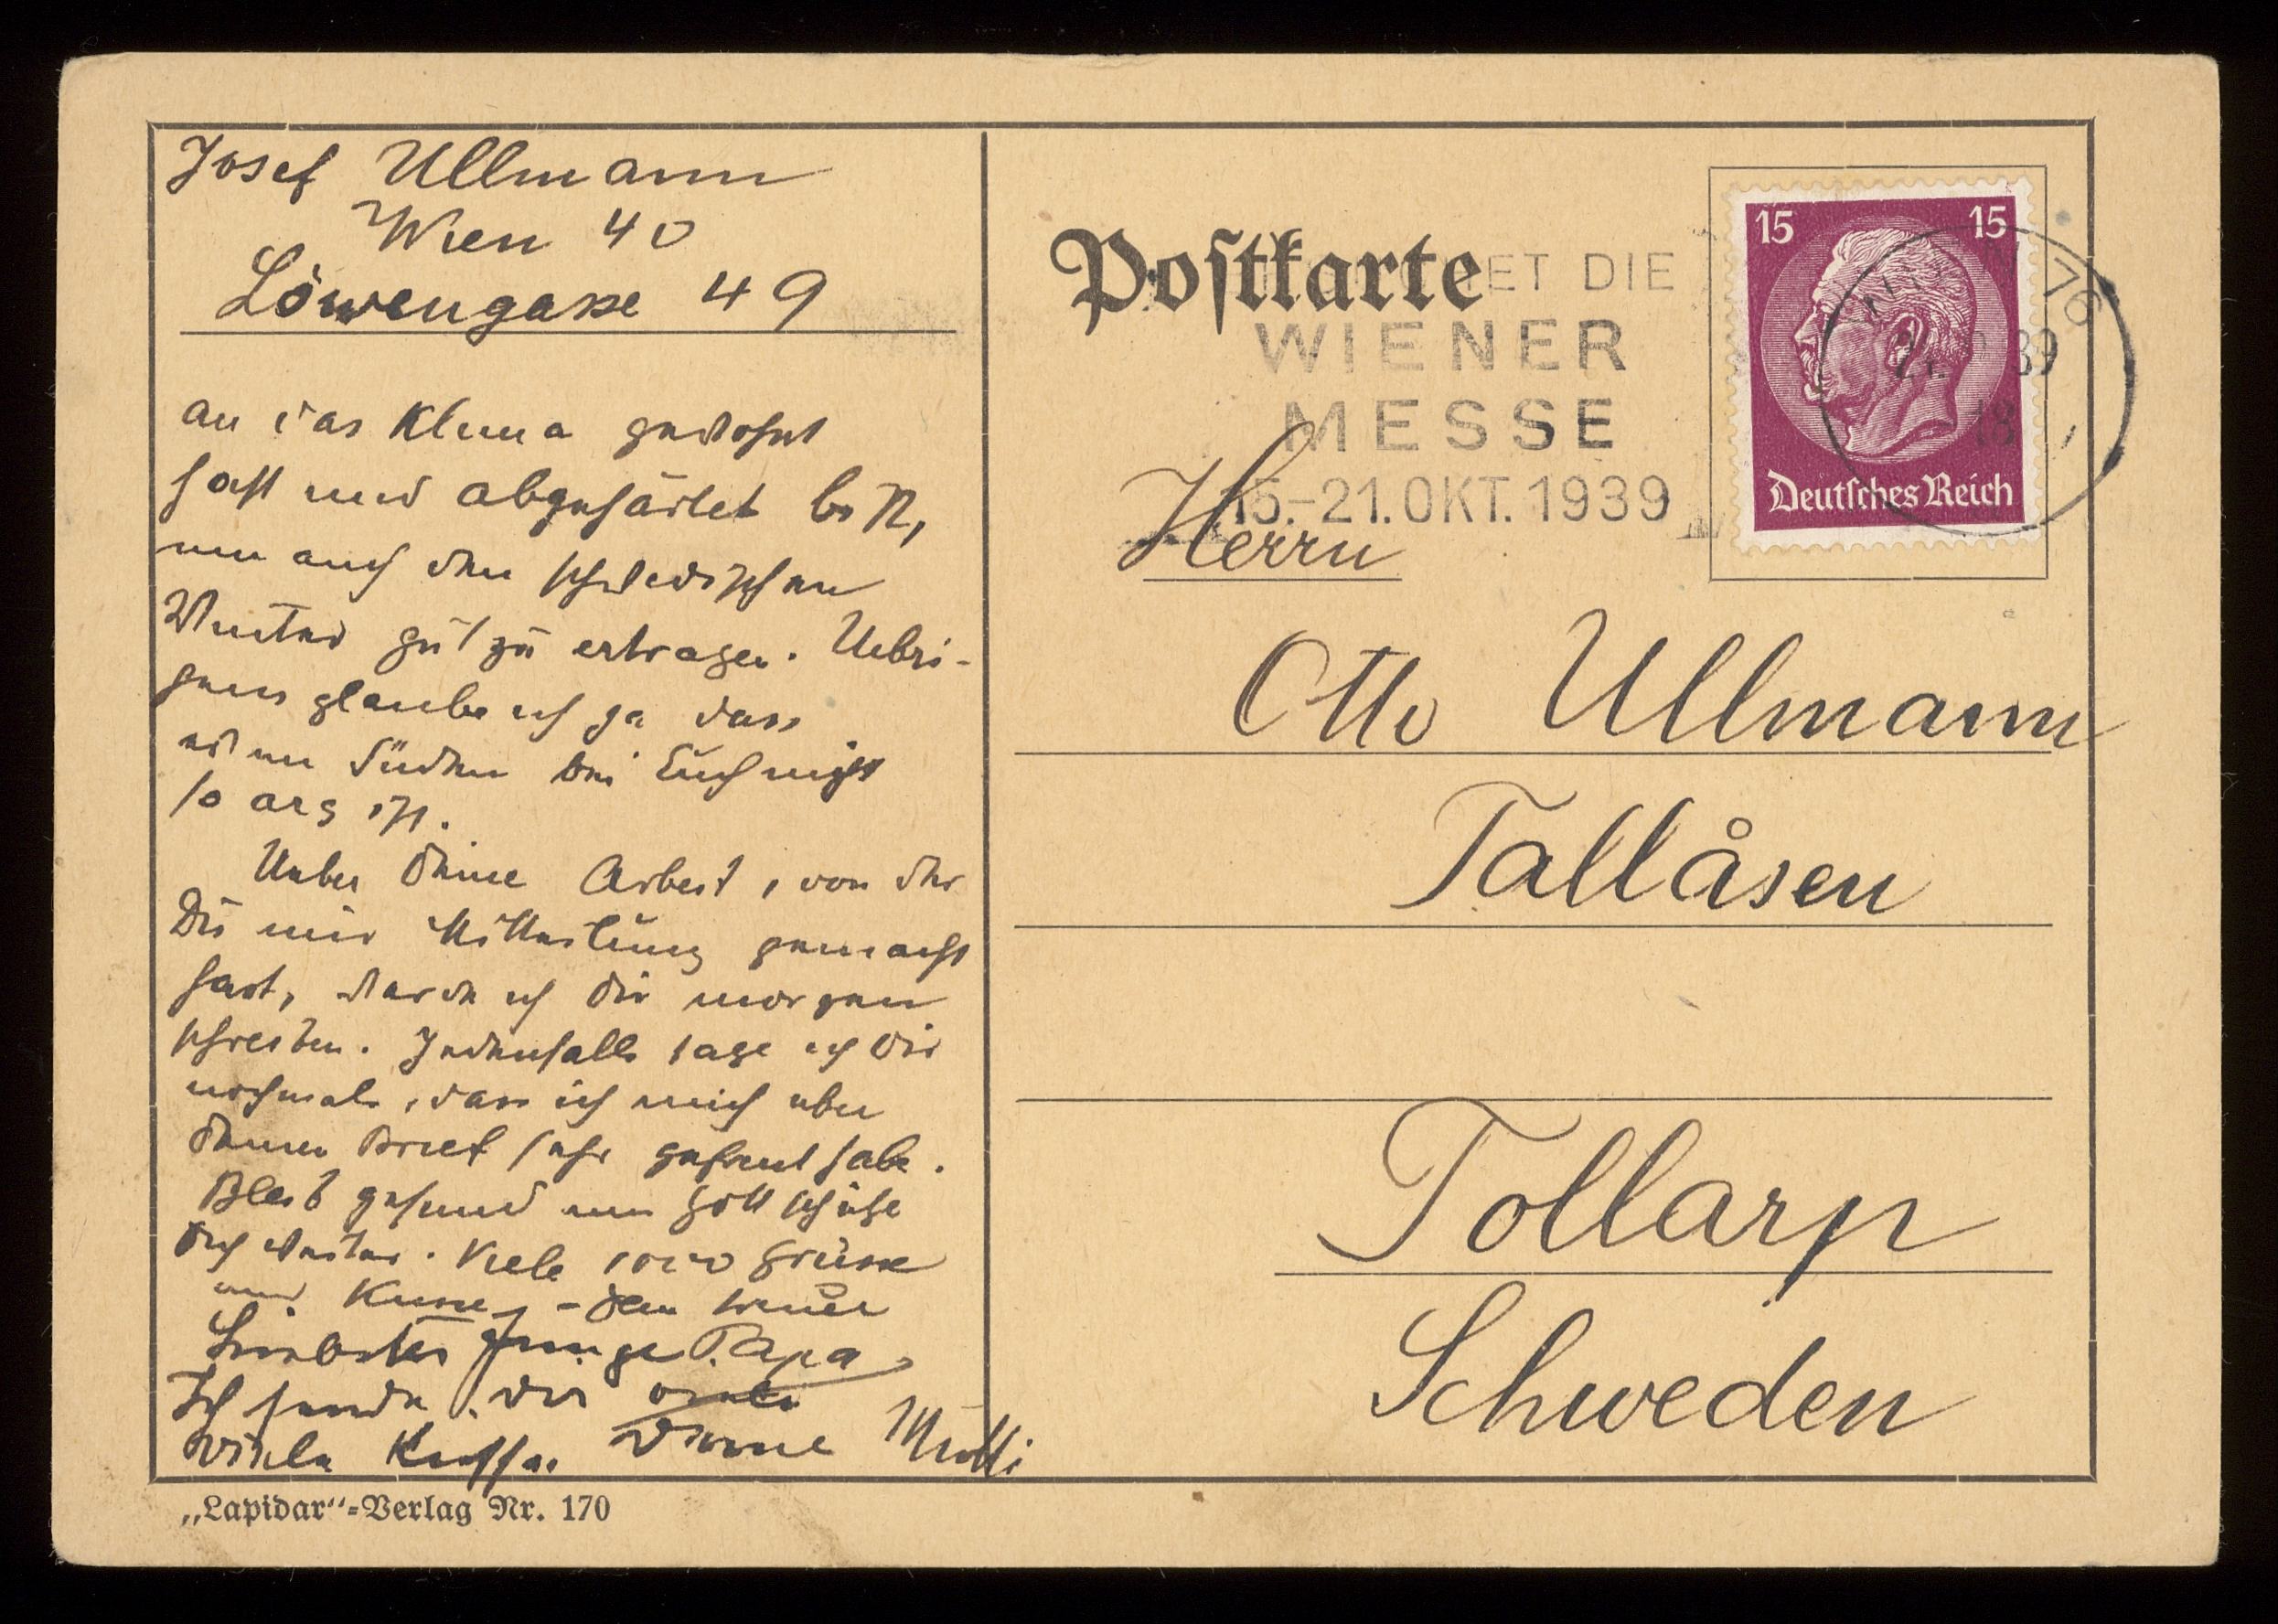 Josef Ullmann
Wien 40
Löwengasse 49
an das Klima gewöhnt
hast und abgehärtet bist,
um auch den schwedischen
Winter gut zu ertragen. Uebri-
gens glaube ich ja dass
es im Süden bei Euch nicht
so arg ist.
Ueber Deine Arbeit, von der
Du mir Mitteilung gemacht
hast, werde ich Dir morgen
schreiben. Jedenfalls sage ich Dir
nochmals, dass ich mich über
Deinen Brief sehr gefreut habe.
Bleib gesund und Gott schütze
Dich weiter. Viele 1000 Grüsse
und Küsse, Dein treuer
Papa
Liebster Junge
Ich sende Dir viele
viele Küsse. Deine Mutti
„Lapidar“-Verlag Nr. 170
Postkarte
ET DIE
WIENER
MESSE
15.-21. OKT. 1939
15 15
Deutsches Reich
76
39
18
Herrn
Otto Ullmann
Tallåsen
Tollarp
Schweden